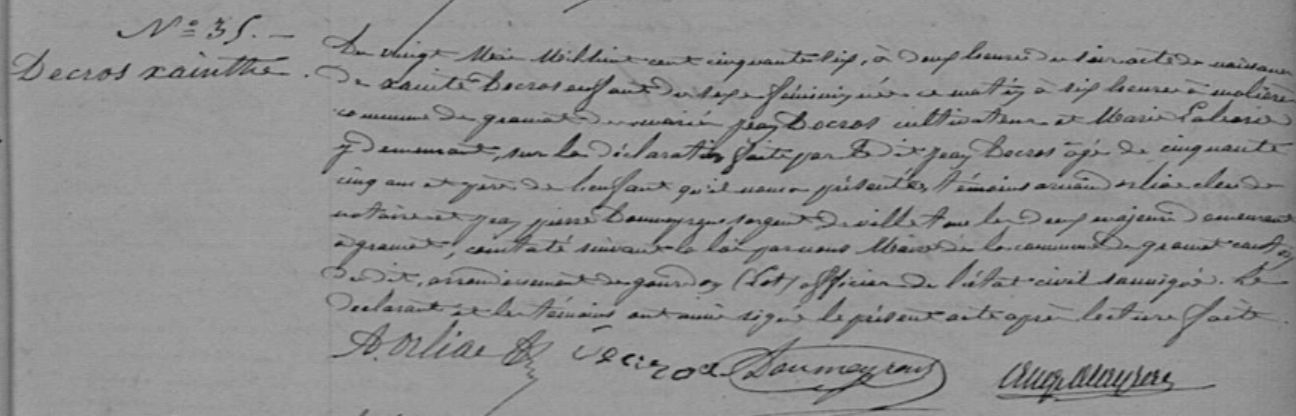 N° 35. -
Decros xainthe.
Du vingt Mai Mil huit cent cinquante six, à deux heures du soir acte de naissance
de xainte Decros enfant du sexe féminin, née ce matin à six heures à molière
commune de gramat de marié jean Decros cultivateur et Marie
y demeurant, sur la déclaration faite par le dit jean Decros âgé de cinquante
cinq ans et père de l'enfant qu'il nous a présentée, témoins armand orliac clerc de
notaire et jean pierre Doumeyrous sergent de ville tous les deux majeurs demeurant
à gramat, constaté suivant la loi par nous Maire de la commune de gramat canton
du dit, arrondissement de gourdon (Lot) officier de l'état civil soussigné. Le
déclarant et les témoins ont ainsi signé le présent acte après lecture faite.
A. orliac Decros Doumeyrous